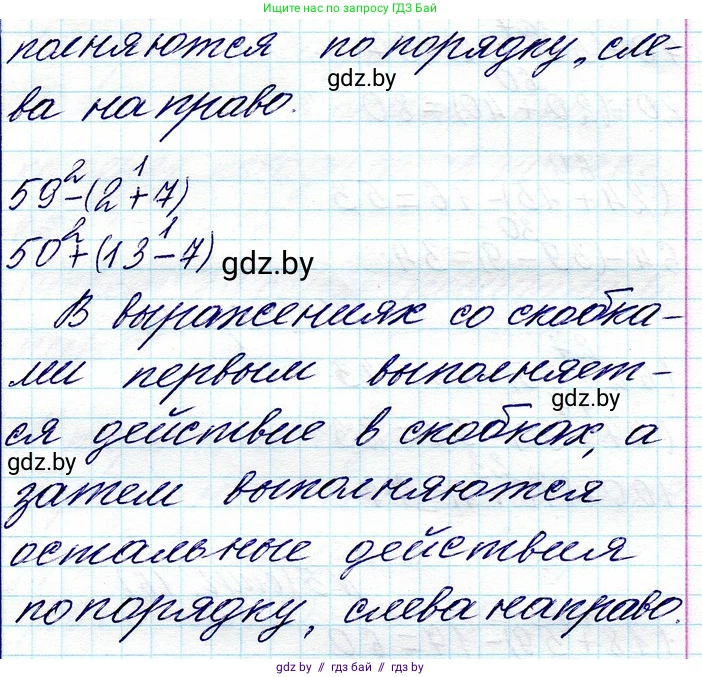 Ищите нас по запросу ГДЗ Бай
полняются по порядку, сле-
gdz.by
ва на право.
2 1
59-(2+7)
2 1
50+(13-7)
gdz.by
В выражениях со скобка-
ми первым выполняет-
gdz.by
ся действие в скобках, а
gdz.by
затем выполняются
остальные действия
по порядку, слева направо.
gdz.by // гдз бай // гдз by